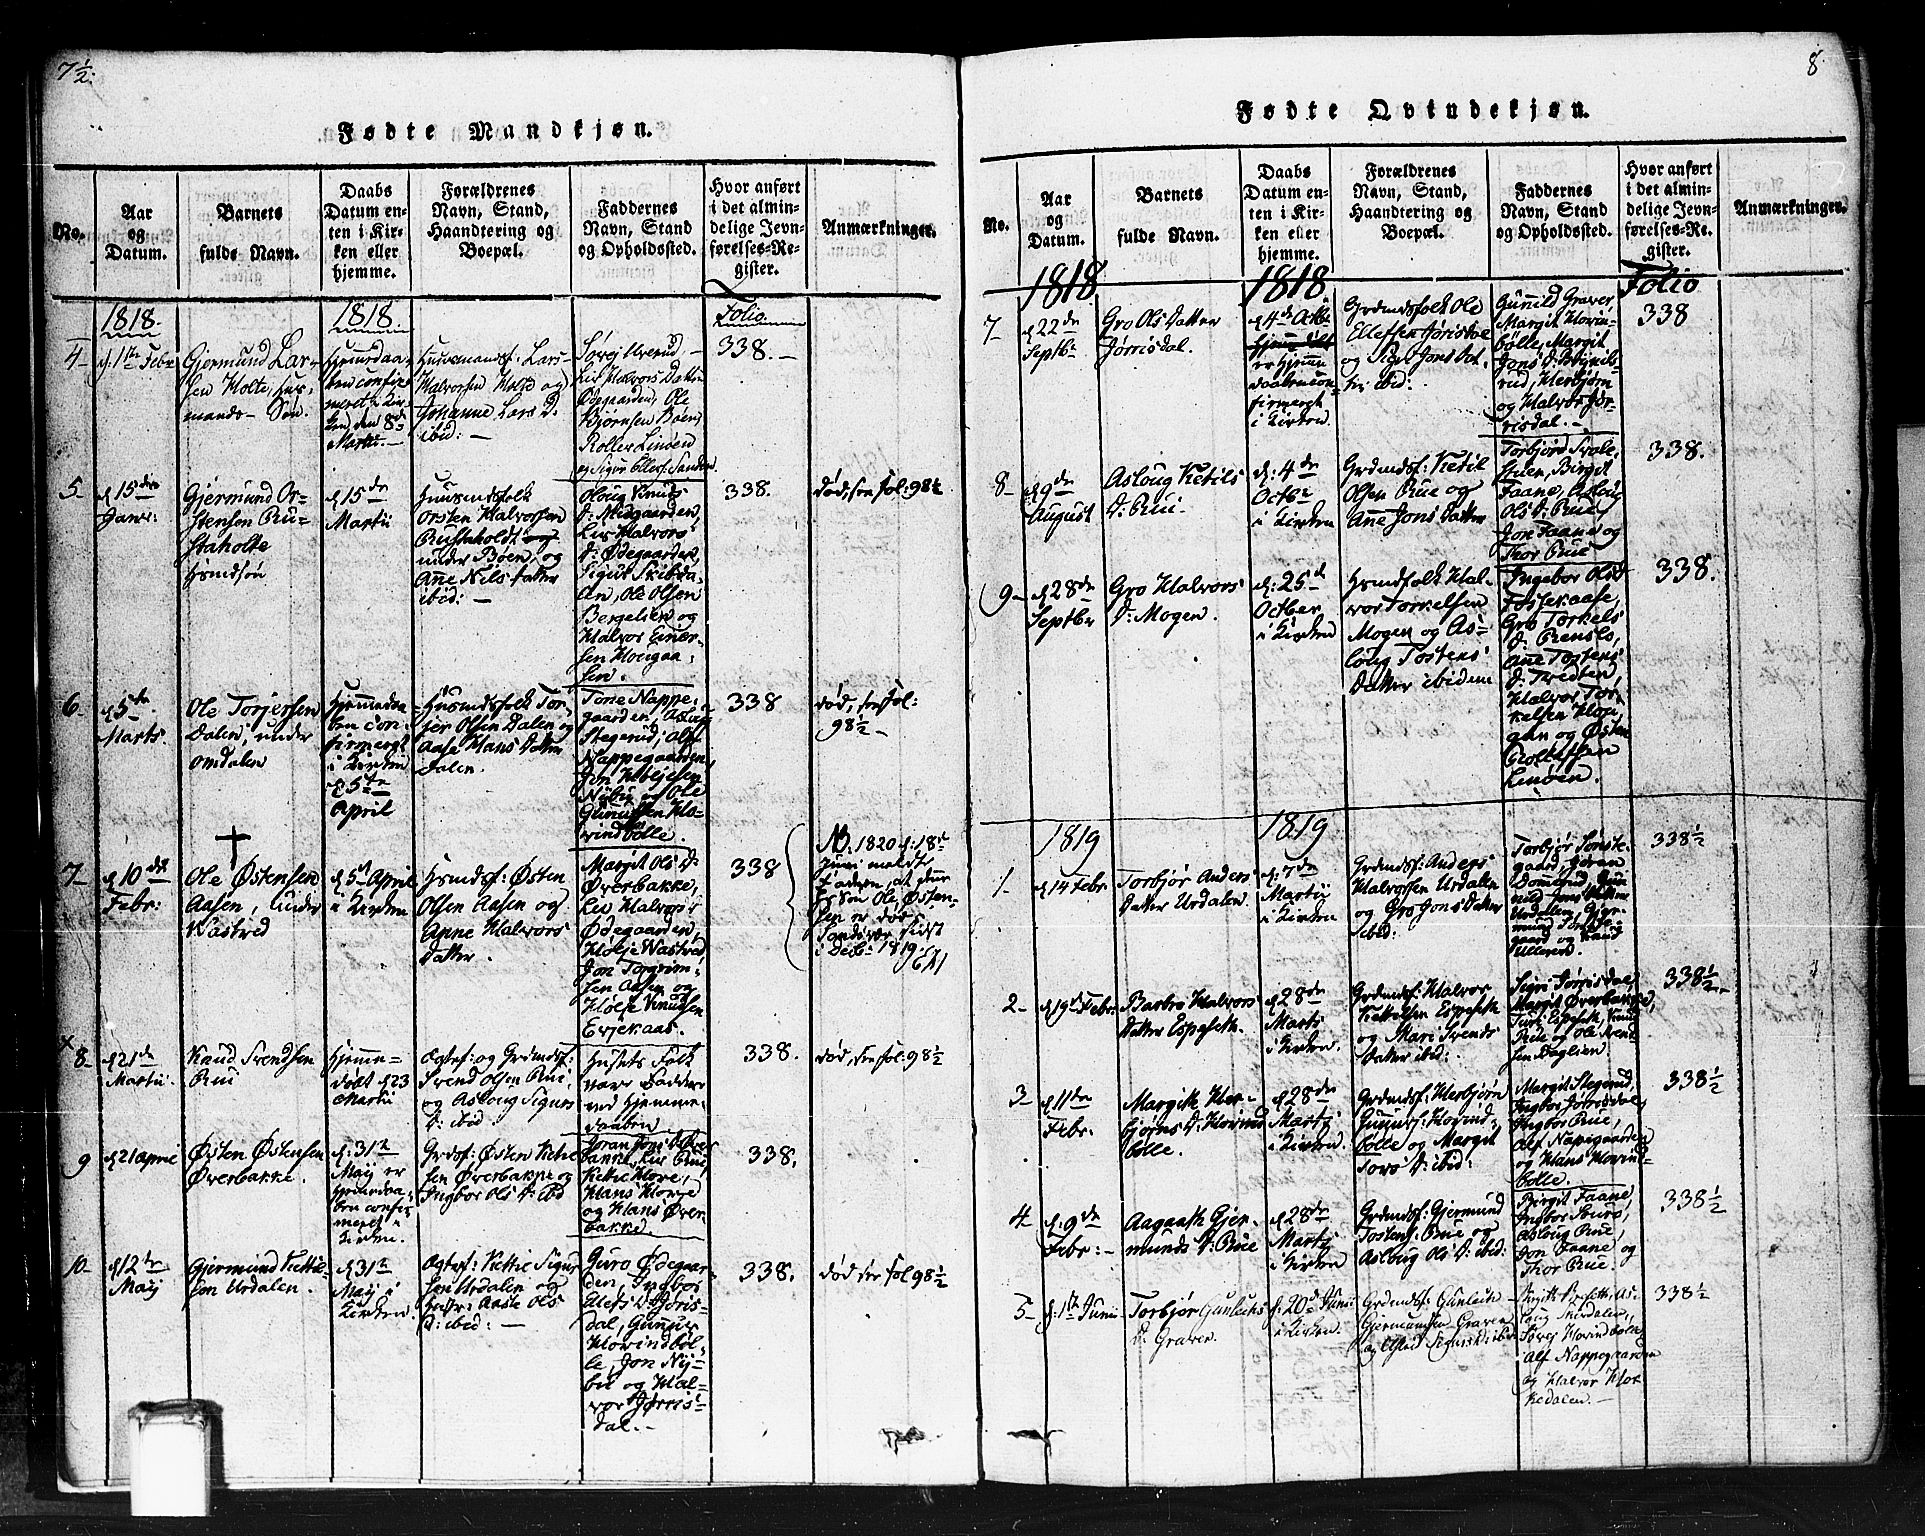 7½.
Fødte Mandkjøn.
No.
Aar
og
Datum.
Barnets
fulde Navn.
Daabs
Datum en-
ten i Kir-
ken eller
hjemme.
Forældrenes
Navn, Stand,
Haandtering og
Boepæl.
Faddernes
Navn, Stand
og Opholdssted.
Hvor anført
i det almin-
delige Jevn-
førelses-Re-
gister.
Anmærkninger.
1818.
1818
Folio
4-
d. 1ste Febr
Gjermund Lar-
sen Holte, hus-
mands-Søn.
Hjemedaa-
ben confir-
meret i Kir-
ken den 8de
Martii.-
Huusmandsf: Lars
Halvorsen Holte og
Johanne Lars D.
ibid:-
Liv Halvors Datter
Ødegaarden, Ole
Bjørnsen Bøen,
Rollev Linøen
og Sigur Ellefs. Sanden
338.-
5
d. 15de
Janr:
Gjermund Or-
stensen Ru-
staholte
Hsmdsøn
d. 15de
Martii
Huusmdsfolk
Orsten Halvorssen
Rustaholdt og
under Bøen og
Ane Nels datter
ibid:-
Oloug Knuds
D: Midgaarden,
Liv Halvors
D: Ødegaarden
Sigur Skibda-
len, Ole Olsen
Bergelien og
Halvor Einær-
sen Hougaa-
sen.
338.
død, see fol: 98½
6-
d. 5te
Marts.
Ole Torjersen
Dalen, under
Omdalen
Hjemmedaa-
ben con-
firmeret
i Kirken
d. 5te
April
Huusmdsfolk Tor-
jer Olsen Dalen og
Aase Hans Datter
Dalen.
Tone Nappe-
gaarden, Aslaug
Stegerud, Alf
Nappegaarden,
Jon
Nybu og Ole
Gunulfsen Ho-
vindbølle.
338
død, see fol:
98½-
7-
d. 10de
Febr:
Ole Østensen
Aasen, under
Wastved
d. 5te April
i Kirken
Hsmdsf: Østen
Olsen Aasen og
Anne Halvors
datter.
Margit Ols D:
Øverbakke,
Liv Halvors D
Ødegaarden,
Høljе Wastved
Jon Torgrim-
sen Aasen og
Hølje Knudsen
Erjekaas.
338
NB. 1820 d: 18de
Juni meldte
Faderen, at hans
Søn Ole Østen-
sen er død
i Decbr 1819.
8-
d. 21de
Martii.
Knud Svendsen
Rui
Hjemme-
døbt d. 23
Martii
Ogtef: og Grdmdsf:
Svend Olsen Rui
og Asloug Sigurs
D: ibid
Husets Folk
vare Faddere
ved Hjemme-
daaben
338.
død, see fol: 98½
9
d. 21 April
Østen Østensen
Øverbakke.
d. 31te
Maij er
Hjemmedaa-
ben confir-
meret i
Kirken.
Grdsf: Østen
sen Øverbakke og
Ingbor Ols D: ibid
Joran Jons D: Øver-
bakke, Liv Rui,
Hans Hovje
og Hans Øver-
bakke.
338.
10-
d. 12te
Maij
Gjermund Kittil-
sen Urdalen.
d. 31te
Maij i
Kirken.
Ogtef: Kittil Sigur-
sen Urdalen og
Hustr: Aaste Ols
D: ibid:-
Guro Ødegaar-
den, Ingbor
Elefs D: Jøris-
dal, Gunnur
Hovindbøl-
le, Jon Ny-
bu og Hal-
vor Jørris-
dal.-
338.
død see fol 98½
8.
Fødte Qvindekjøn.
No.
Aar
og
Datum.
Barnets
fulde Navn.
Daabs
Datum en-
ten i Kir-
ken eller
hjemme.
Forældrenes
Navn, Stand,
Haandtering og
Boepæl.
Faddernes
Navn, Stand
og Opholdssted.
Hvor anført
i det almin-
delige Jevn-
førelses-Re-
gister.
Anmærkninger.
1818
1818
Folio
7-
d. 22de
Septbr
Gro Ols Datter
Jørrisdal.
d. 4de Octbr
er hjemme
daaben con-
firmeret
i Kirken.
Grdmdsfolk Ole
Ellefsen Jørisdal
og Sigri Jons Dat-
ter ibid:
Gunnild Graver
Margit Hovin-
bølle, Margit
Jons D:
rud, Herbjørn
og Halvor Jør-
risdal.-
338
8-
d. 9de
August
Asloug Ketils
D: Rui.
d: 4de
Octbr
i Kirken
Grdmdsf: Ketil
Olsen Rue og
Anne Jons datter
Torbjørd
Birgit
Faane, Asloug
Ols D: Rue,
Jon Faane og
Thor Rue
338.
9-
d. 28de
Septbr
Gro Halvors
D: Mogen.
d: 25d
Octber
i Kirken
Hsmdfolk Hal-
vor Torkelsen
Mogen og As-
loug Tostens
Datter ibidem
Ingebor Ols D
Gro Torkels
D: Rensle,
Ane Tostens
D: Tredten,
Halvor Tor-
kelsen Mo-
gen og Østen
Rolleffsen
Linøen.
338.
1819
1819
1-
d. 14 Febr.
Torbjør Anders
Datter Urdalen.
d. 7de
Martij
i Kirken
Grdmdsf: Anders
Halvorssen Urdalen
og Gro Jons datter
ibid:
Torbjør Tønste-
gaard, Joran
Bommerud, Gun-
nild Jons datter
Urdalen, Gjer-
mund Tønste-
gaard og Knud
Ullerud.
338½
2-
d. 19de Febr.
Barbro Halvors
datter Espeseth.
d. 28de
Martij
i Kirken.
Grdmdsf: Halvor
Kittilsen Espeseth
og Mari Svends
datter ibid:
Sigri Jørrisdal,
Margit Øverbakke,
Turi Espeseth, Knud
Rue og Ole Svend-
sen Daglien.
338½
3-
d. 11de
Febr.
Margith Her-
bjørns D: Hovind-
bølle.
d. 28de
Martij
i Kirken.
Grdmdsf: Herbjørn
Gunulfs: Hovind-
bølle og Margit
Tors D: ibid:
Margit Stegerud,
Ingbor Jørrisdal,
Ingbor Rue,
Alf Nappegaarden
og Hans Hovind-
bølle.
338½
4-
d. 9de
Febr:-
Aagaath Gjer-
munds D: Rue
d. 28de
Martij
i Kirken
Grdmdsf: Gjermund
Tostens: Rue og
Asloug Ols D: ibid:
Birgit Faane,
Ingbor Buro,
Asloug Rue
Jon Faane og
Thor Rue.
338½
5-
d. 1ste Junii
Torbjør Gunleiks
D: Graver.
d. 20de Junii
i Kirken.
Grdmdsf: Gunleik
Gjermundsen Graver
As-
loug
Hovindbølle,
Alf Nappegaarden
og Halvor Klok-
kedalen.-
338½